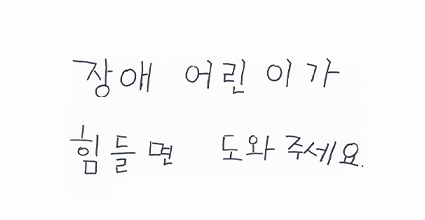 장애 어린이가
힘들면 도와주세요.